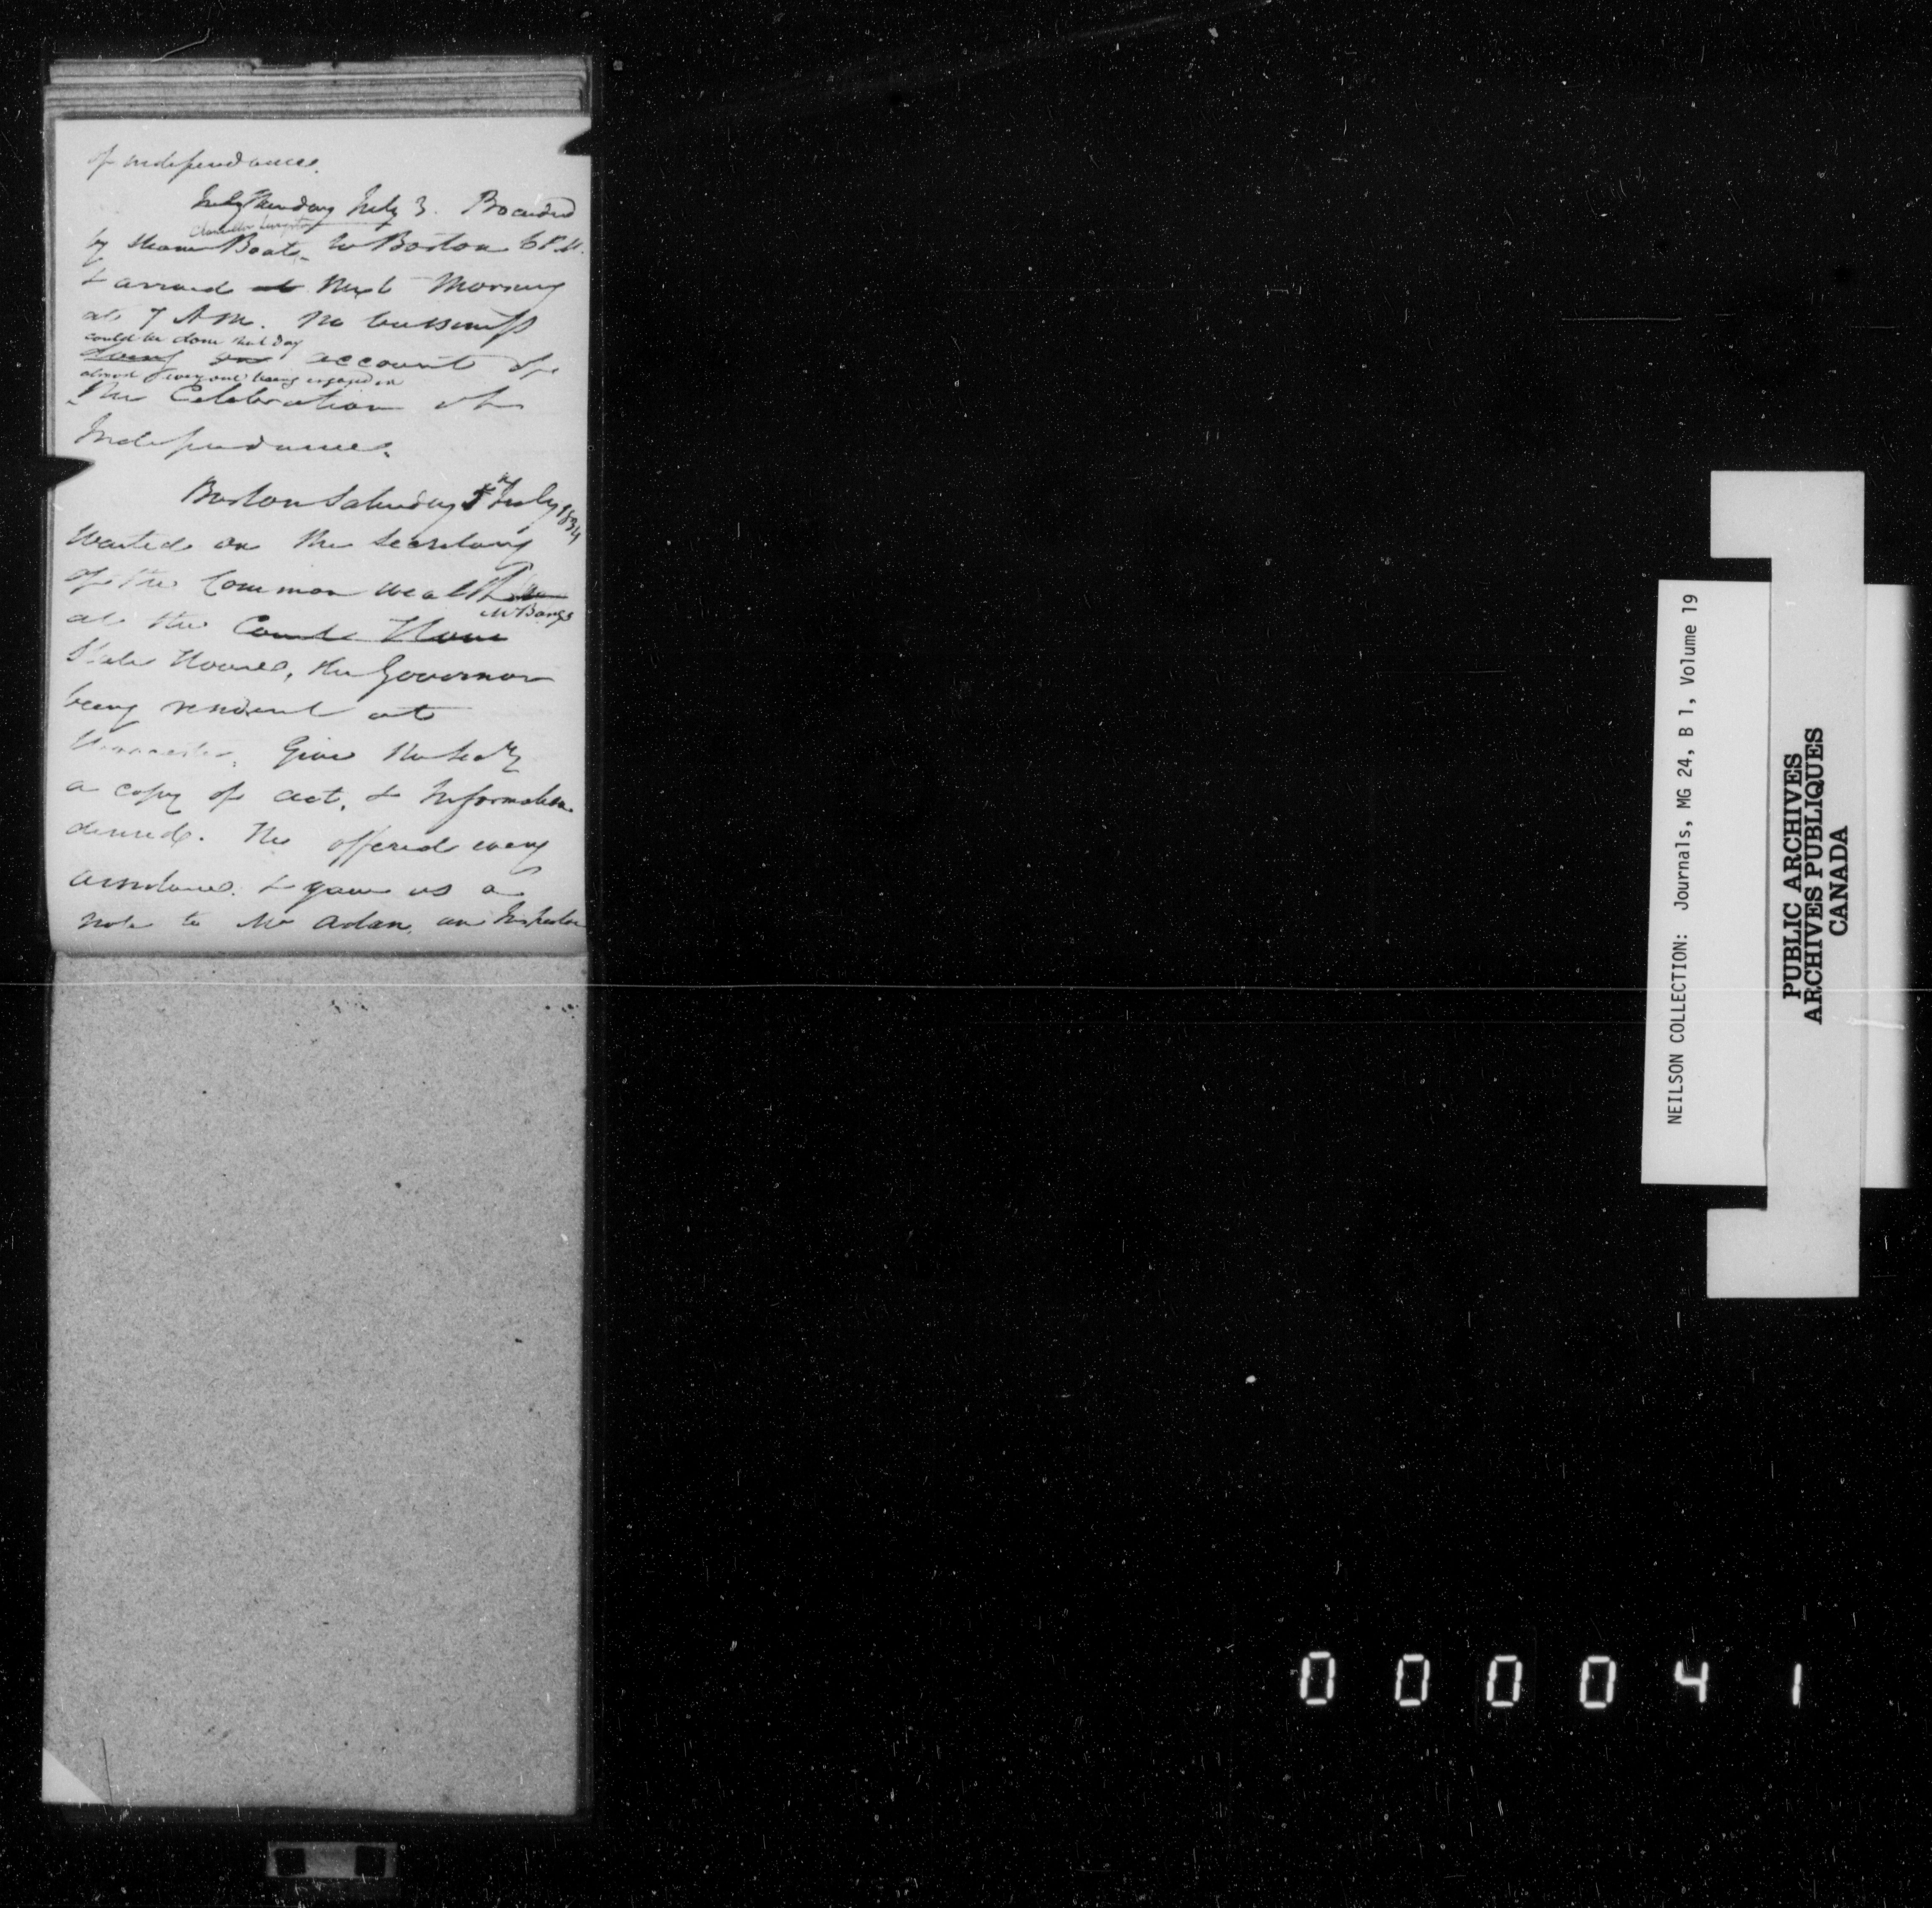 of independance.
July Thursday July 3. Boarded
by Steam Boat to Boston 6 P.M.
& arrived at Next Morning
at 7 A.M. No bussiness
could be done that day
doing on account of
almost every one being engaged in
The Celebration of
Independance.
Boston Saturday 5th July 1834
Waited on the Secretary
of the Common Wealth
Mr Bangs
at the Court House
State House, the Governor
being resident at
Worcester. Give the Secy
a copy of act, & Information
desired. He offered every
assistance. & gave us a
note to Mr Adan, an Inspector
NEILSON COLLECTION: Journals, MG 24, B 1, Volume 19
PUBLIC ARCHIVES
ARCHIVES PUBLIQUES
CANADA
000041